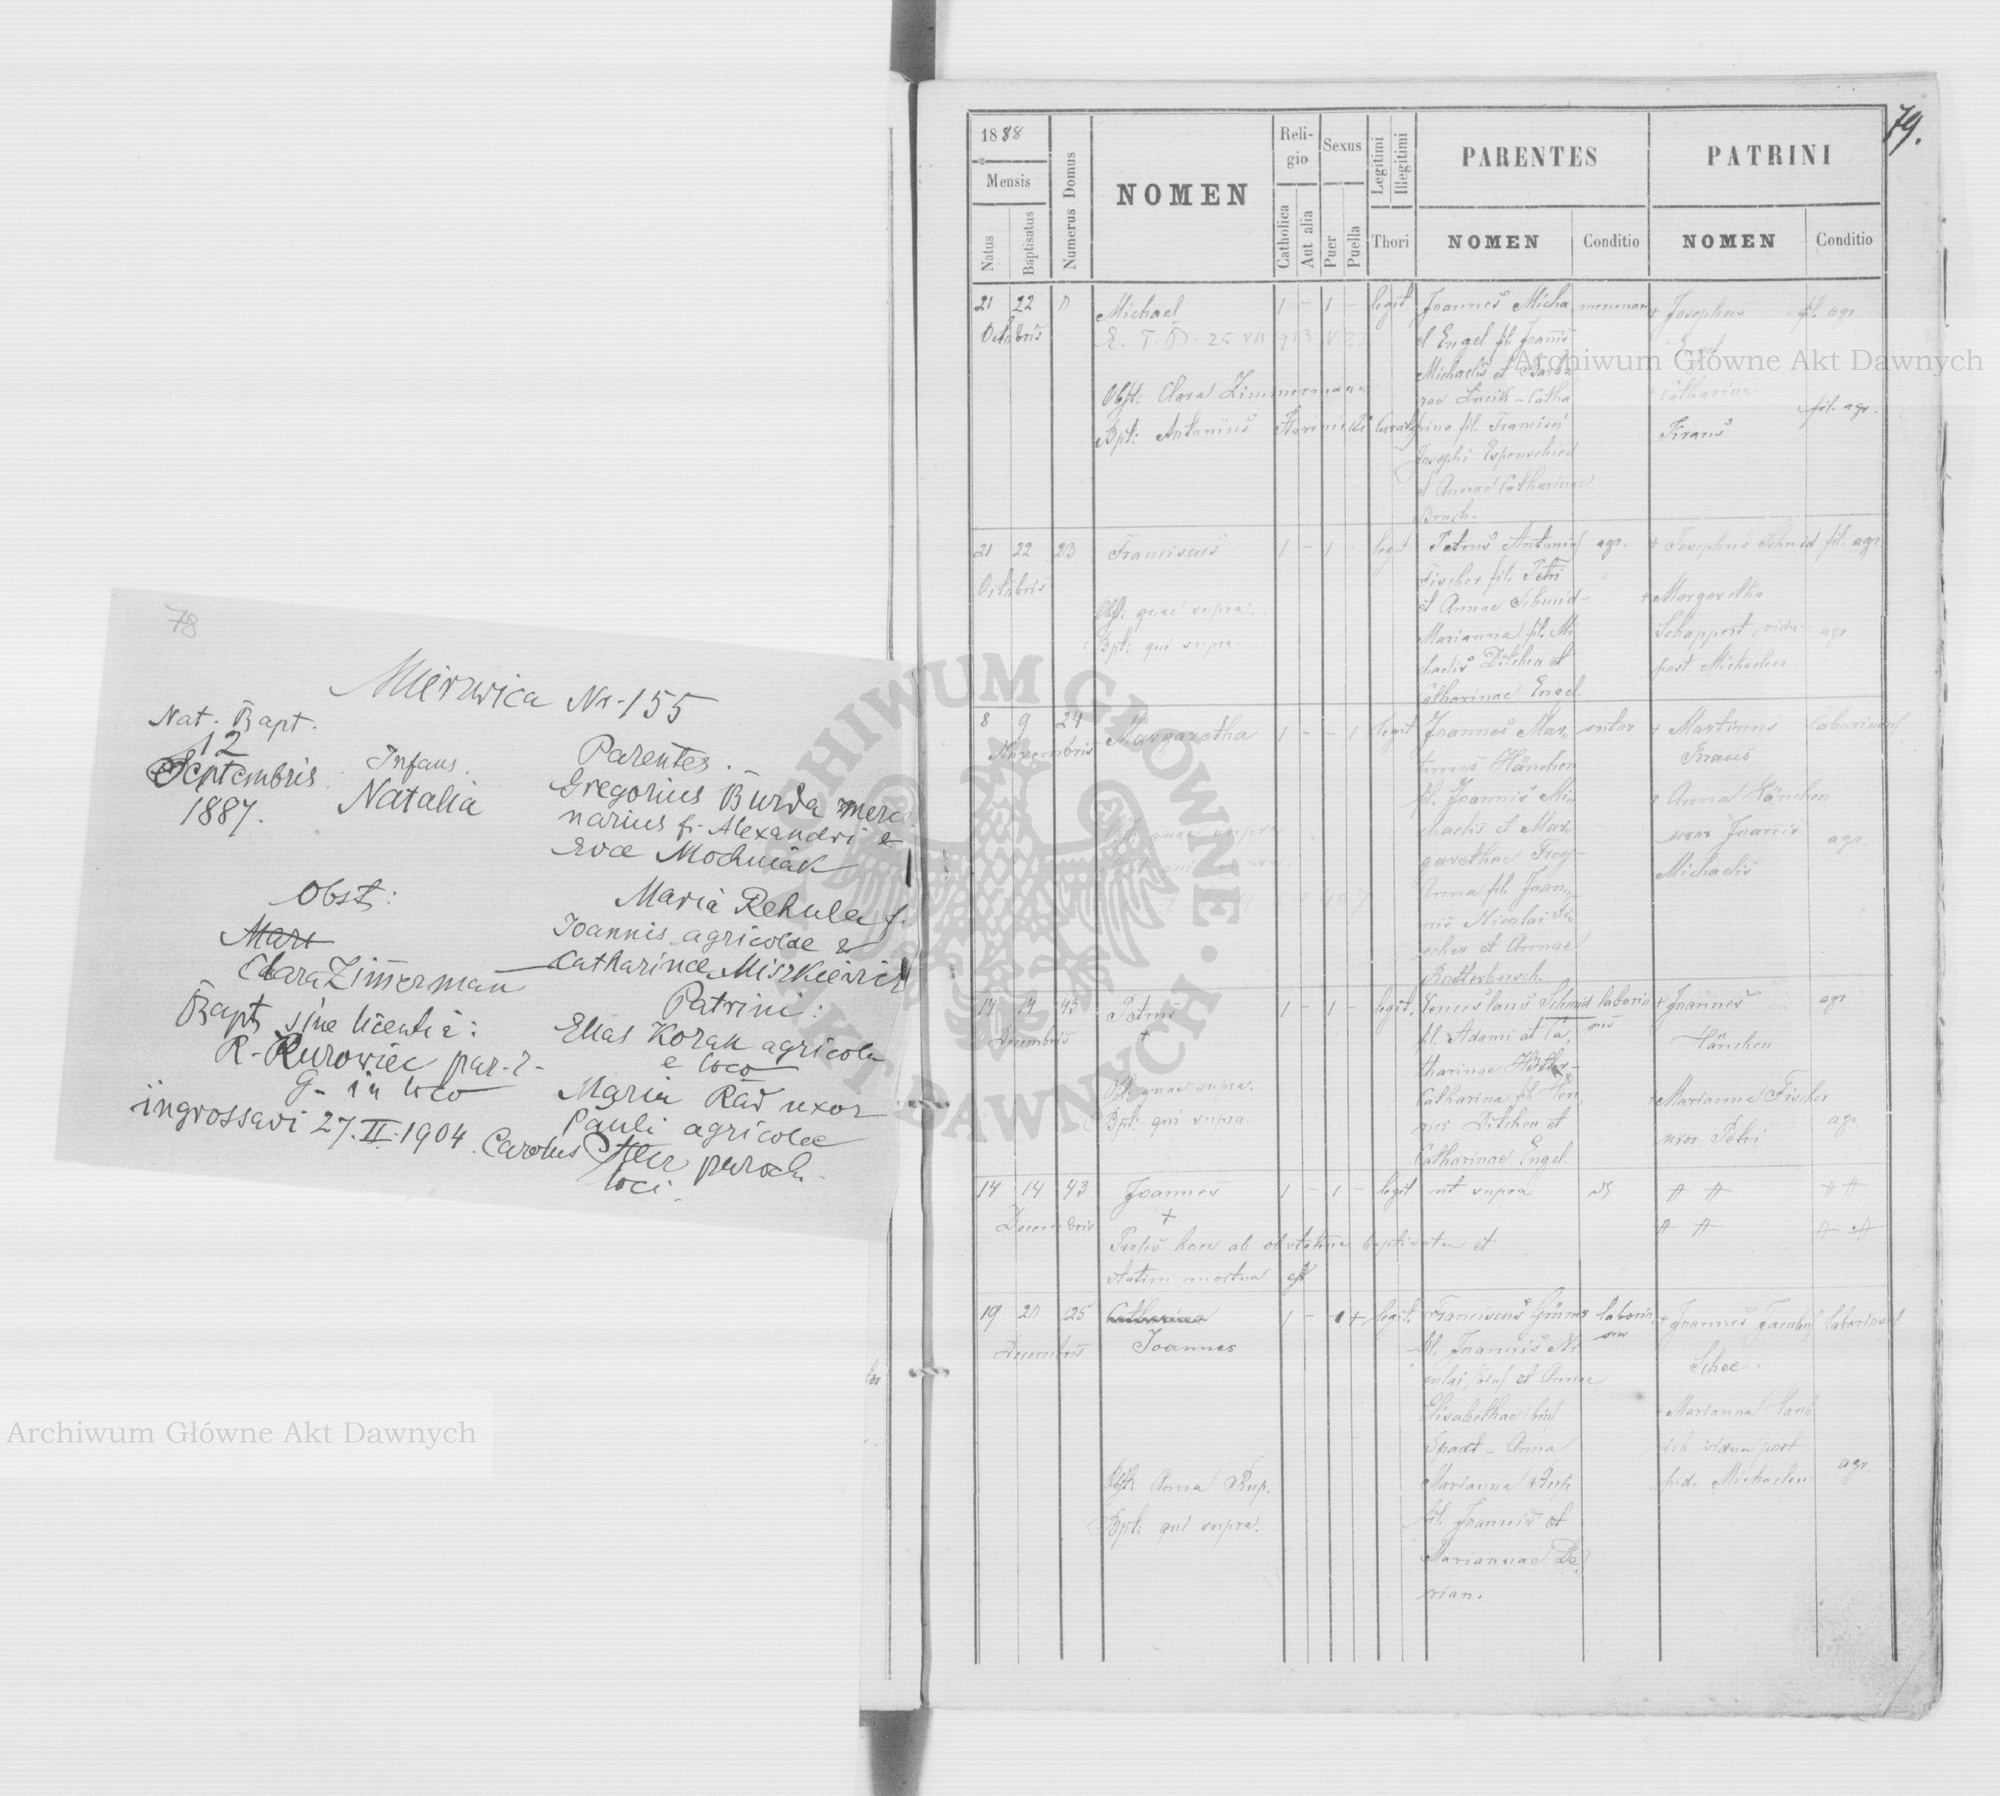 78
Mierwica Nr. 155
Nat. Bapt.
12
Septembris
1887.
Infans.
Natalia
Parentes.
Gregorius Burda merce
narius f. Alexandri &
Evae Mochniak
Maria Rekula f.
Joannis agricolae &
Catharinae Miszkiewicz
Obst:
Clara Zimmerman
Bapt. sine licentia:
R. Kurowiec par. r.
G. in loco
Patrini:
Elias Korak agricola
e loco
Maria Rad uxor
Pauli agricolae
ingrossavi 27.II.1904. Carolus paroch.
loci.
79.
1888
Mensis
Natus
Baptisatus
Numerus Domus
NOMEN
Religio
Catholica
Aut alia
Sexus
Puer
Puella
Legitimi
Illegitimi
Thori
PARENTES
NOMEN
Conditio
PATRINI
NOMEN
Conditio
21 22 Michael 1 - 1 - legit.
Octobris
Obst: Clara Zimmermann
Bpt: Antonius
Joannes Micha
el Engel fil. Joannis
Michaelis et Barba
rae - Catha
rina fil. Francisci
Josephi Espenschied
et Annae Catharinae
Bruch.
Josephus fil. agr.
Engel
Catharina fil. agr.
Kraus
21 22 23 Franciscus 1 - 1 - legit
Octobris
Obst: quae supra.
Bpt: qui supra.
Petrus Antonius agr.
Fischer fil. Petri
et Annae Schmid -
Marianna fil. Mi
chaelis Ditchen et
Catharinae Engel
Josephus Schmid fil. agr
Margaretha
Schappert, vidu- agr
post Michaelem
8 9 24 Margaretha 1 - - 1 legit
Novembris
Obst: quae supra
Joannes Mar, sutor
tinus Hänchen
fil. Joannis Mi,
chaelis et Mar,
garethae Frey -
Anna fil. Joan,
nis Nicolai Fi,
scher et Annae
Butterbusch.
Martinus laborinus
Kraus
Anna Hänchen
uxor Joannis agr.
Michaelis
14 14 43 Petrus 1 - 1 - legit.
Decembris +
Obst: quae supra.
Bpt: qui supra.
Venceslaus Schmid laborin
fil. Adami et Ca, us
tharinae
Catharina fil. Hen,
rici Ditchen et
Catharinae Engel.
Joannes agr
Hänchen
Marianna Fischer
uxor Petri agr.
14 14 43 Joannes 1 - 1 - legit ut supra
Decembris +
Proles haec ab obstetrice baptisata et
statim mortua est
19 20 125 Catharina 1 - 1 + legit.
Decembris Joannes
Obst: Anna Rup.
Bpt: qui supra.
Franciscus laborin
fil. Joannis Ni
colai et Annae
Elisabethae
- Anna
Marianna Rup
fil. Joannis et
Mariannae De,
rian.
Joannes Jacobus laborinus
Schoe
Marianna
vidua post
p.d. Michaelem agr.
Archiwum Główne Akt Dawnych
Archiwum Główne Akt Dawnych
ARCHIWUM GŁÓWNE · AKT DAWNYCH ·